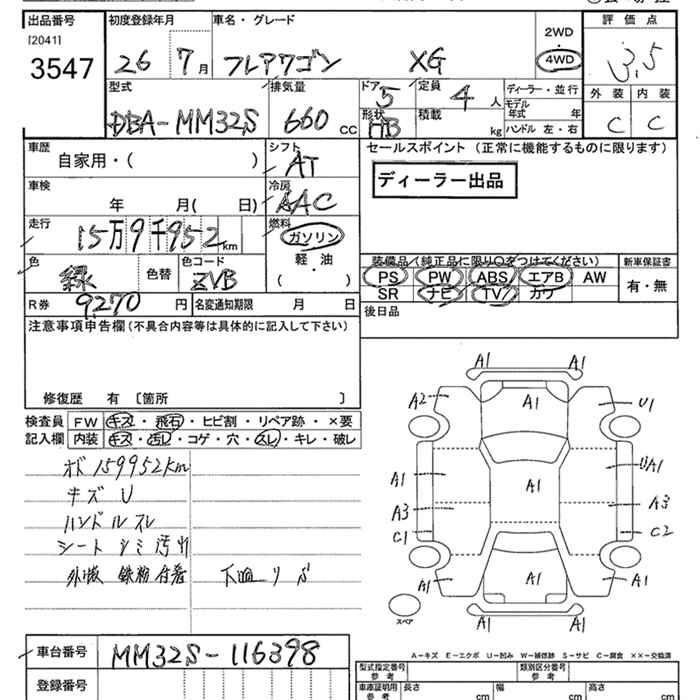 出品番号 初度登録年月 車名・グレード 2WD 評価点
[2041] 26 7月 フレアワゴン XG 4WD 3.5
3547
型式 排気量 ドア 定員 ディーラー・並行 外装 内装
DBA-MM32S 660cc 5 4人 モデル年式 年 C C
形状 HB 積載 kg ハンドル 左・右
車歴 シフト セールスポイント (正常に機能するものに限ります)
自家用・( ) AT
ディーラー出品
車検 冷房
年 月( 日) AAC
走行 燃料
15万9千952km ガソリン
軽・油
( )
色 色コード 装備品(純正品に限り〇をつけてください) 新車保証書
緑 色替 ZVB PS PW ABS エアB AW 有・無
SR ナビ TV カワ
R券 9270円 名変通知期限 月 日 後日品
注意事項申告欄(不具合内容等は具体的に記入して下さい)
修復歴 有 〔箇所 〕
検査員 FW キズ・飛石・ヒビ割・リペア跡・×要
記入欄 内装 キズ・汚レ・コゲ・穴・スレ・キレ・破レ
オド159952km
キズ U
ハンドルスレ
シートシミ汚れ
外板 鉄粉付着 下回りS
A1 A1
A2 A1 U1
A1 A1
A1
A3 A3
C1 C2
A1 A1 A1
スペア
A1 A1
A-キズ E-エクボ U-凹み W-補修跡 S-サビ C-腐食 ××-交換済
車台番号 MM32S-116398
登録番号
型式指定番号 参考 類別区分番号 参考
車庫証明用 参考 長さ cm 幅 cm 高さ cm